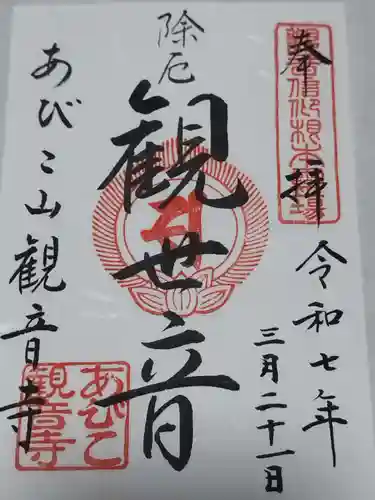 奉拝
令和七年
三月二十一日
除厄
観世音
あびこ山観音寺
あびこ
観音寺